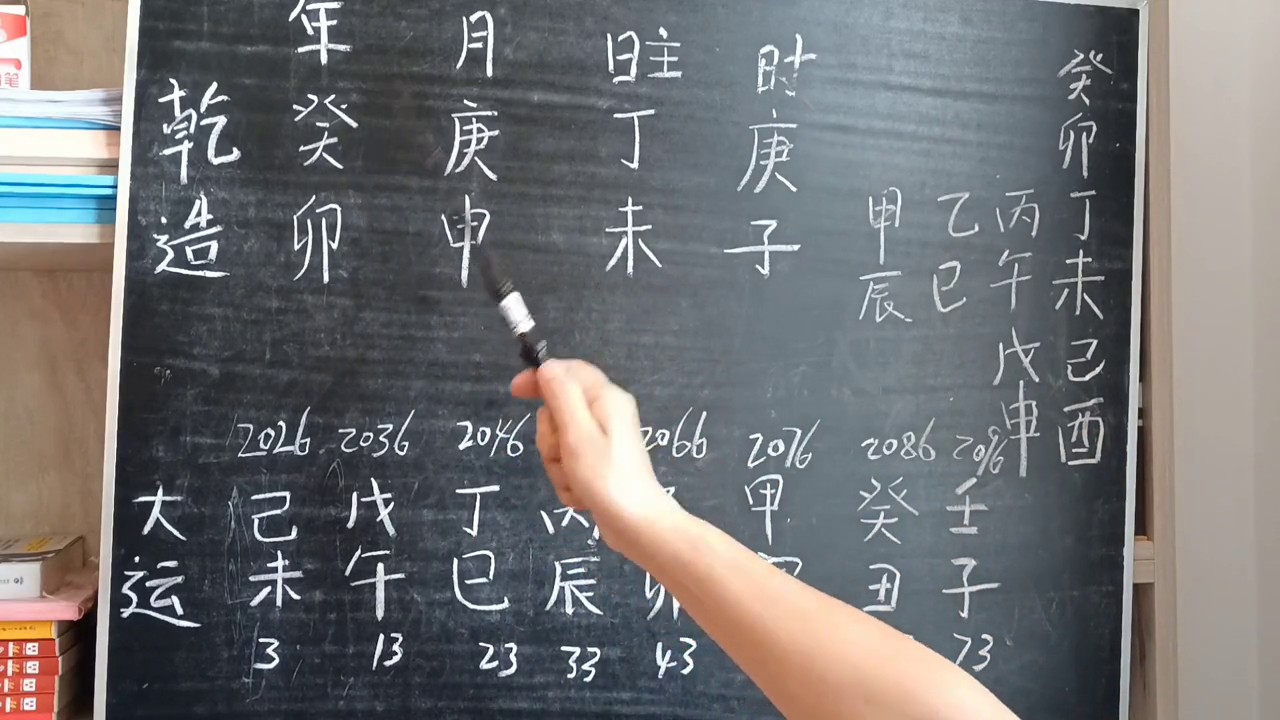 年 月 日主 时
乾 癸 庚 丁 庚
造 卯 申 未 子
甲 乙 丙 丁 癸
辰 巳 午 未 卯
戊 己
申 酉
2026 2036 2046 2066 2076 2086 2096
大 己 戊 丁 丙 甲 癸 壬
运 未 午 巳 辰 卯 丑 子
3 13 23 33 43 73